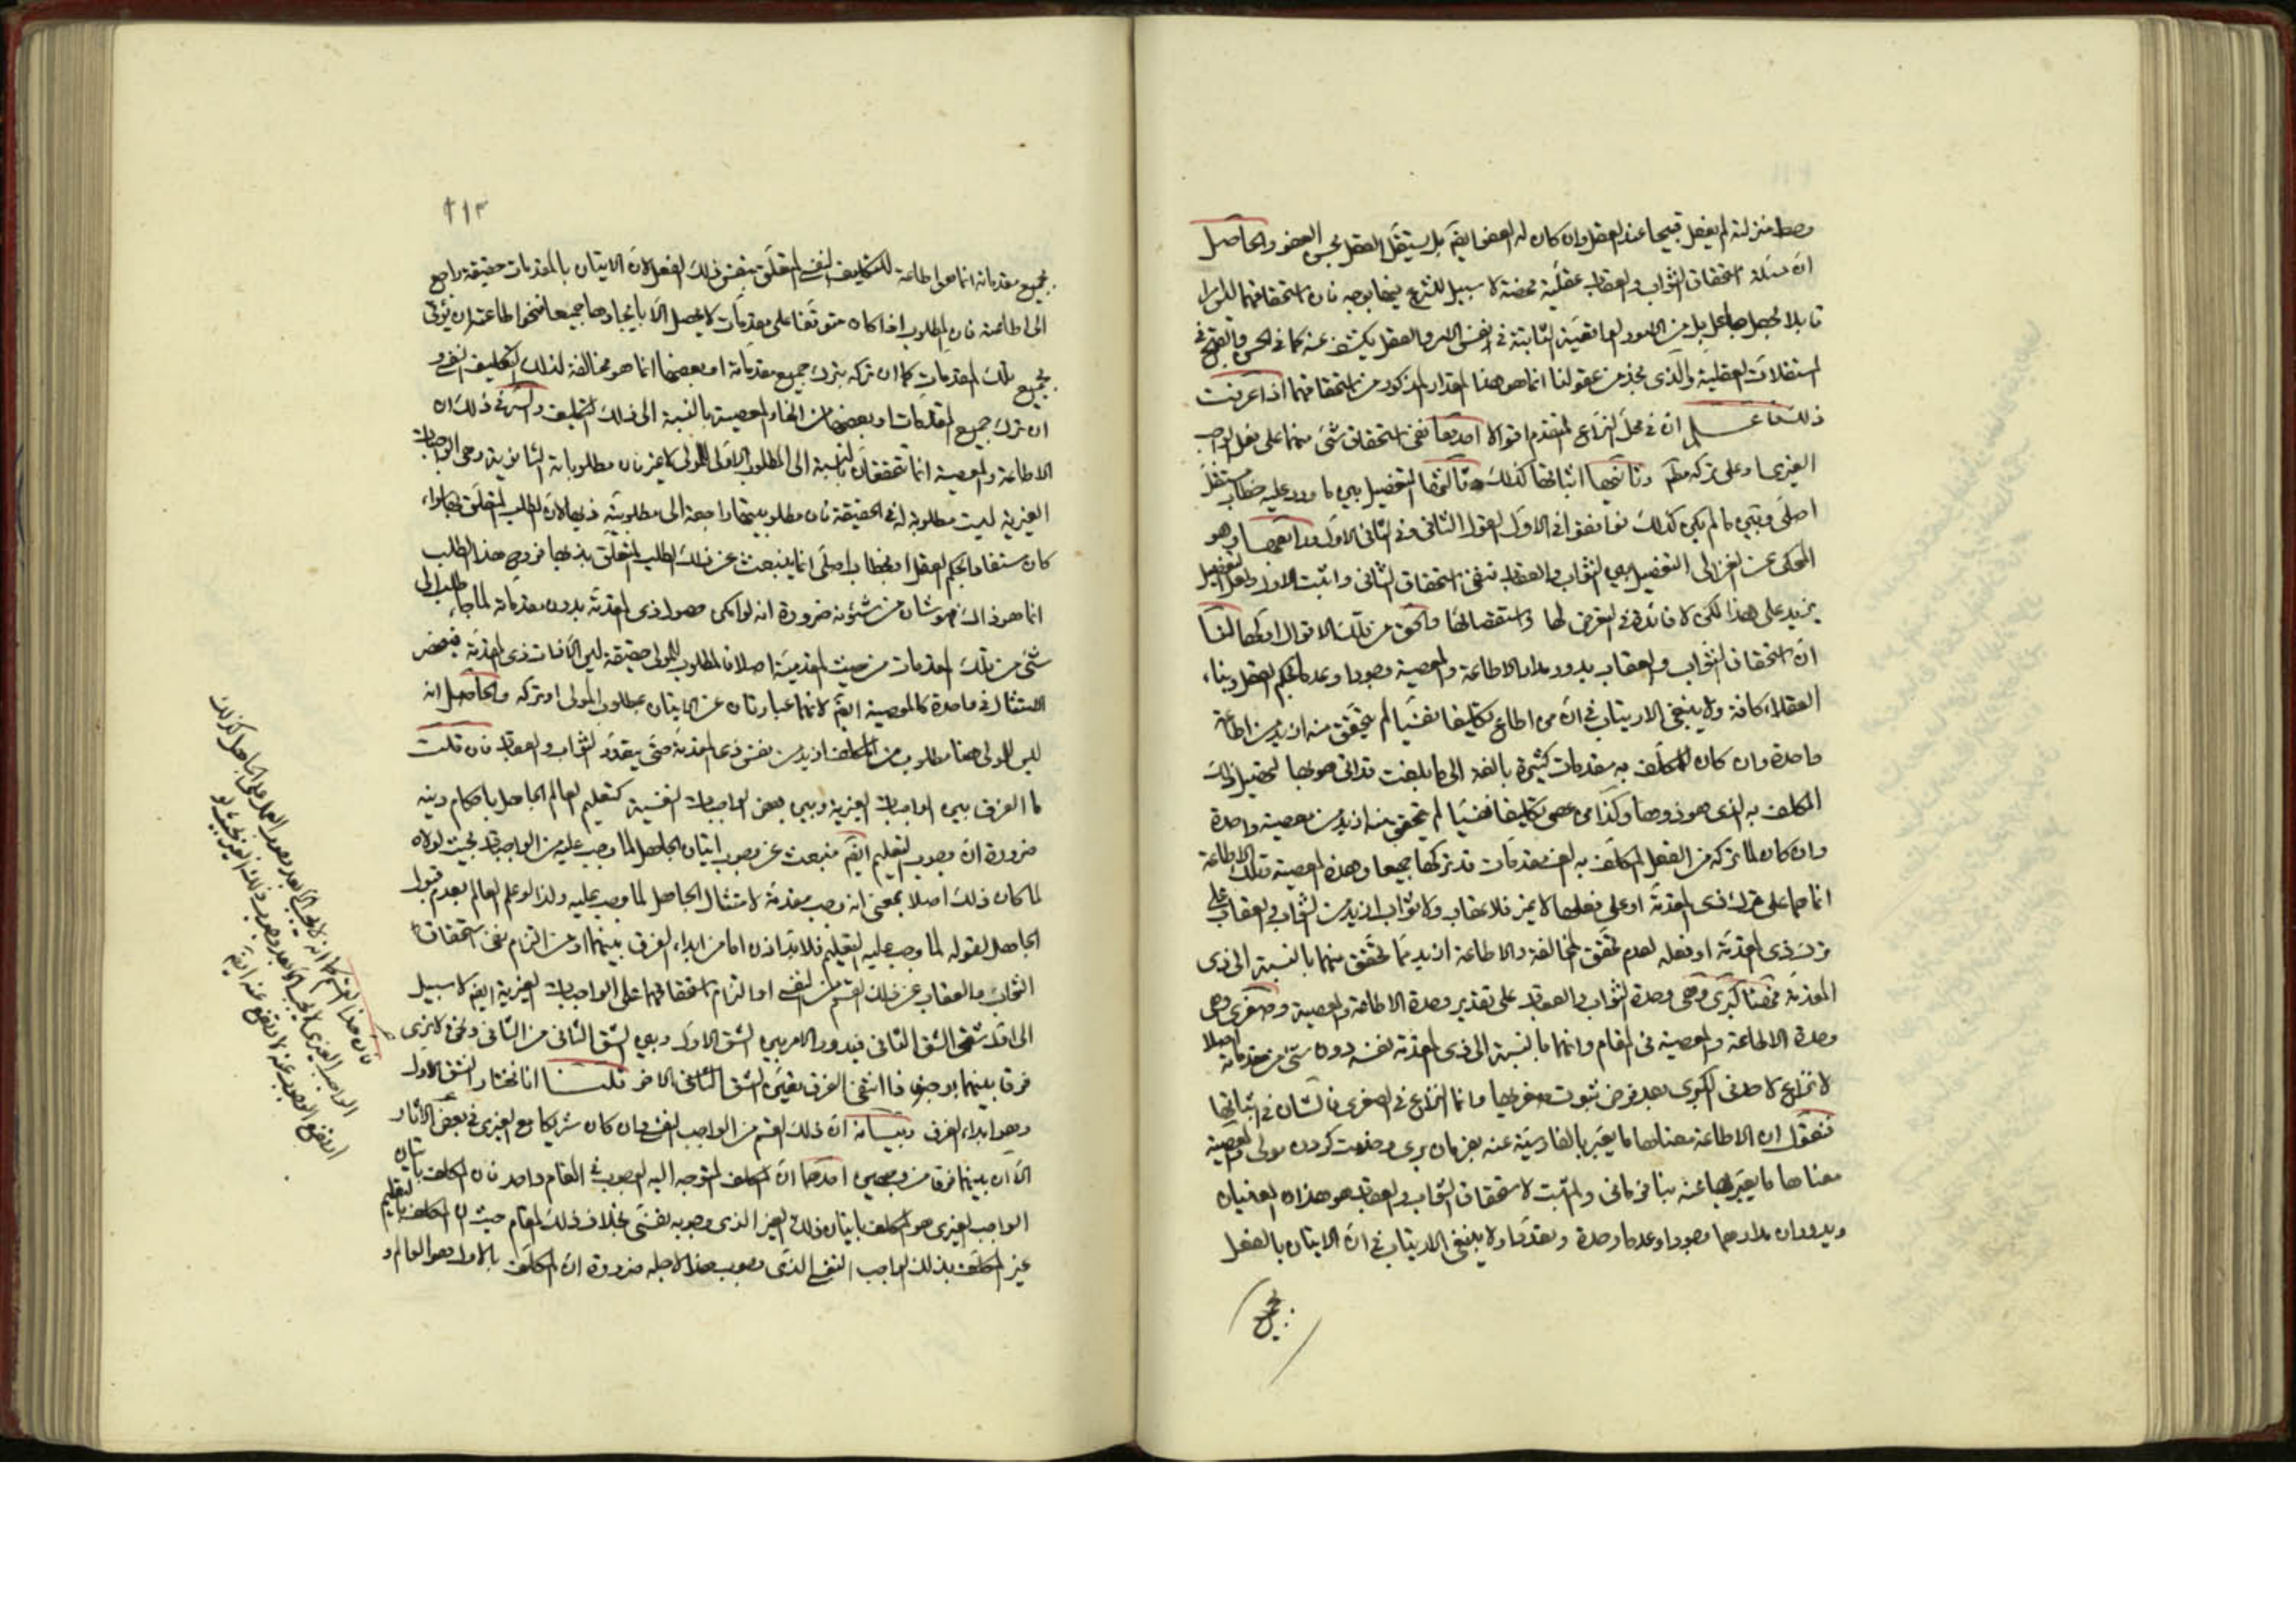 وحط منزلته لم يفعل قبيحا عند العقل وان كان له العفو ايضم بل يستقل العقل بحسن العفو والحاصل
ان مسئلة استحقاق الثواب والعقاب عقلية محضة لا سبيل للشرع فيها بوجه فان استحقاقهما ليس امرا
قابلا لجعل جاعل بل من الامور الواقعية الثابتة في نفس الامر والعقل يكشف عنه كما في الحسن والقبح في
المستقلات العقلية والذي نجد من عقولنا انما هو هذا المقدار المذكور من استحقاقهما اذا عرفت
ذلك فاعلم ان في محل النزاع المتقدم اقوالا احدها نفي استحقاق شئ منهما على فعل الواجب
الغيري او على تركه مطم وثانيها اثباتها كذلك وثالثها التفصيل بين ما ورد عليه خطاب مستقل
اصلي وبين ما لم يكن كذلك فوافقوا في الاول القول الثاني وفي الثاني الاول ورابعها وهو
المحكى عن الغزالي التفصيل بين الثواب والعقاب فنفى استحقاق الثاني واثبت الاول ولعل التفصيل
يزيد على هذا لكن لا فائدة في التعرض لها واستقصائها والحق من تلك الاقوال اولها لنا
ان استحقاق الثواب والعقاب يدور مدار الاطاعة والمعصية وجودا وعدما بحكم العقل وبناء
العقلاء كافة ولا ينبغي الارتياب في ان من اطاع تكليفا نفسيا لم يتحقق منه ازيد من اطاعة
واحدة وان كان للمكلف به مقدمات كثيرة بالغة الى ما بلغت قد اتى هو بها لتحصيل ذلك
المكلف به الذي هو ذوها وكذا من عصى تكليفا نفسيا لم يتحقق منه ازيد من معصية واحدة
وان كان لما تركه من الفعل المكلف به الف مقدمات قد تركها جميعا وهذه المعصية وتلك الاطاعة
انما هما على ترك ذي المقدمة او على فعلها لا غير فلا عقاب ولا ثواب ازيد من الثواب والعقاب على
ترك ذي المقدمة او فعله لعدم تحقق المخالفة والاطاعة ازيد مما تحقق منهما بالنسبة الى ذي
المقدمة فهنا كبرى وهي وحدة الثواب والعقاب على تقدير وحدة الاطاعة والمعصية وصغرى وهي
وحدة الاطاعة والمعصية في المقام وانهما بالنسبة الى ذي المقدمة نفسه دون شئ من مقدماته اصلا
لا نزاع لاحد في الكبرى بعد فرض ثبوت صغريها وانما النزاع في الصغرى فالشان في اثباتها
فنقول ان الاطاعة معناها ما يعبر بالفارسية عنه بفرمان بري وخدمت كردن مولى والمعصية
معناها ما يعبر بها عنه بنافرماني والمثبت لاستحقاق الثواب والعقاب هو هذان المعنيان
ويدوران مدارهما وجودا وعدما وحدة وتعددا ولا ينبغي الارتياب في ان الاتيان بالفعل
بجميع
٢١٣
بجميع مقدماته انما هو اطاعة للتكليف النفسي المتعلق بنفس ذلك الفعل لان الاتيان بالمقدمات حقيقة راجع
الى اطاعته فان المطلوب اذا كان متوقفا على مقدمات لا يحصل الا بايجادها جميعا فنحو اطاعته ان يؤتى
بجميع تلك المقدمات كما ان تركه بترك جميع مقدماته او بعضها انما هو مخالفة لذلك التكليف النفسي و
ان ترك جميع المقدمات او بعضها من انحاء المعصية بالنسبة الى ذلك التكليف والسر في ذلك ان
الاطاعة والمعصية انما تتحققان بالنسبة الى المطلوب الاولى للمولى لا غير فان مطلوباته الثانوية وهي الواجبات
الغيرية ليست مطلوبة له في الحقيقة فان مطلوبيتها راجعة الى مطلوبية ذيها لان الطلب المتعلق بها سواء
كان مستفادا بحكم العقل او بخطاب اصلي انما ينبعث عن ذلك الطلب المتعلق بذيها فروح هذا الطلب
انما هو ذاك وهو شان من شؤنه ضرورة انه لو امكن حصول ذي المقدمة بدون مقدماته لما جاء طلب الى
شئ من تلك المقدمات من حيث المقدمية اصلا فالمطلوب للمولى حقيقة ليس الا ذات ذي المقدمة فينحصر
الامتثال في واحدة كالمعصية ايضم لانهما عبارتان عن الاتيان بمطلوب المولى او تركه والحاصل انه
ليس للمولى هنا مطلوب من المكلف ازيد من نفس ذي المقدمة حتى يتعدد الثواب والعقاب فان قلت
ما الفرق بين الواجبات الغيرية وبين بعض الواجبات النفسية كتعليم العالم الجاهل باحكام دينه
ضرورة ان وجوب التعليم ايضم منبعث عن وجوب اتيان الجاهل لما وجب عليه من الواجبات بحيث لولاه
لما كان ذلك اصلا بمعنى انه وجب مقدمة لامتثال الجاهل لما وجب عليه ولذا لو علم العالم بعدم قبول
الجاهل لقوله لما وجب عليه التعليم فلا بد اذن اما من ابداء الفرق بينهما او من التزام نفي استحقاق
الثواب والعقاب عن ذلك القسم من النفسي او التزام استحقاقهما على الواجبات الغيرية ايضم لا سبيل
الى اول شقي الشق الثاني فيدور الامر بين الشق الاول وبين الشق الثاني من الثاني ونحن لا نرى
فرقا بينهما بوجه فاذا انتفى الفرق تعين الشق الثاني الاخر قلت انا نختار الشق الاول
وهو ابداء الفرق وبيانه ان ذلك القسم من الواجب النفسي وان كان شريكا مع الغيري في بعض الاثار
الا ان بينهما فرقا من وجهين احدهما ان المكلف المتوجه اليه الوجوب في المقام واحد فان المكلف باتيان
الواجب الغيري هو المكلف باتيان ذلك الغير الذي وجوبه نفسي بخلاف ذلك المقام حيث ان المكلف بالتعليم
غير المكلف بذلك الواجب النفسي الذي وجوب هذا لاجله ضرورة ان المكلف بالاول هو العالم و
فان هذا القسم كما انه لا يجب الا بعد وجوب العمل على الجاهل كذلك
الواجب الغيري لا يجب الا بعد وجوب ذلك الغير بحيث لو
انتفى الوجوب عنه لانتفى عنه ايضم